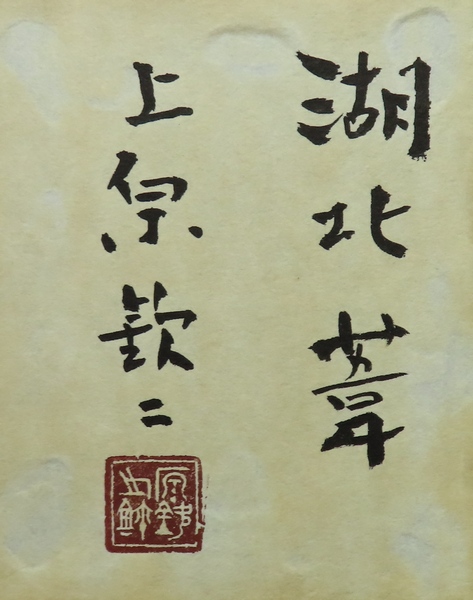 湖北葦
上原欽二